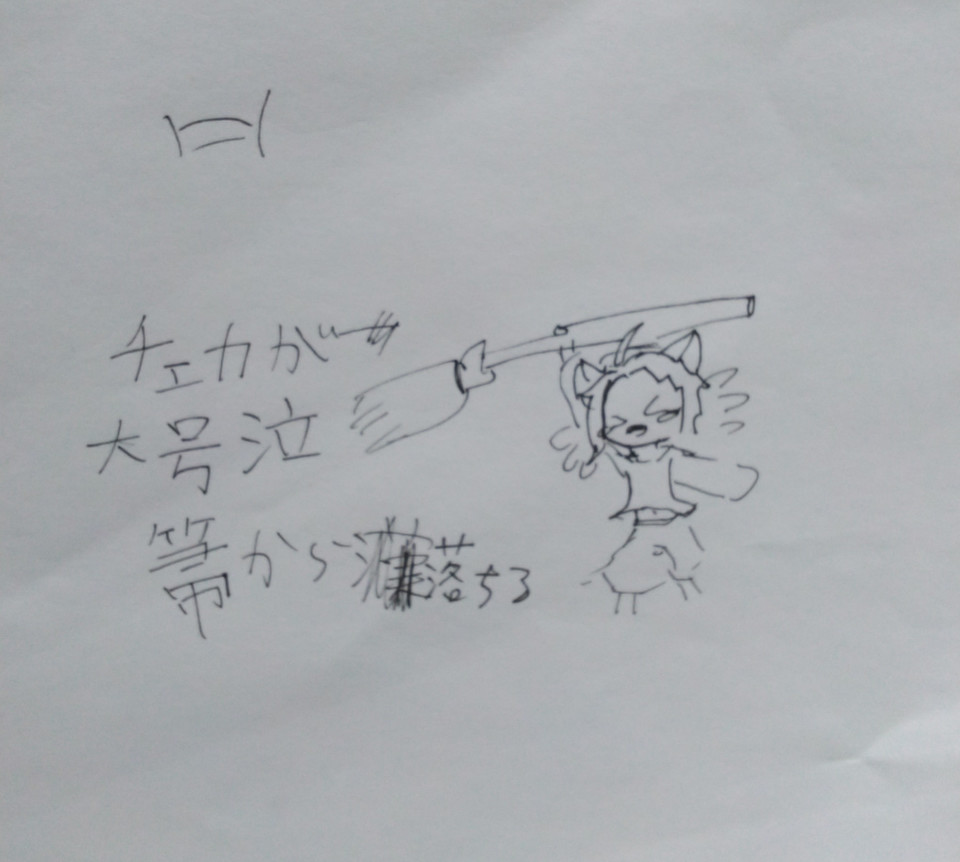 チェカが
大号泣
箒から落ちる